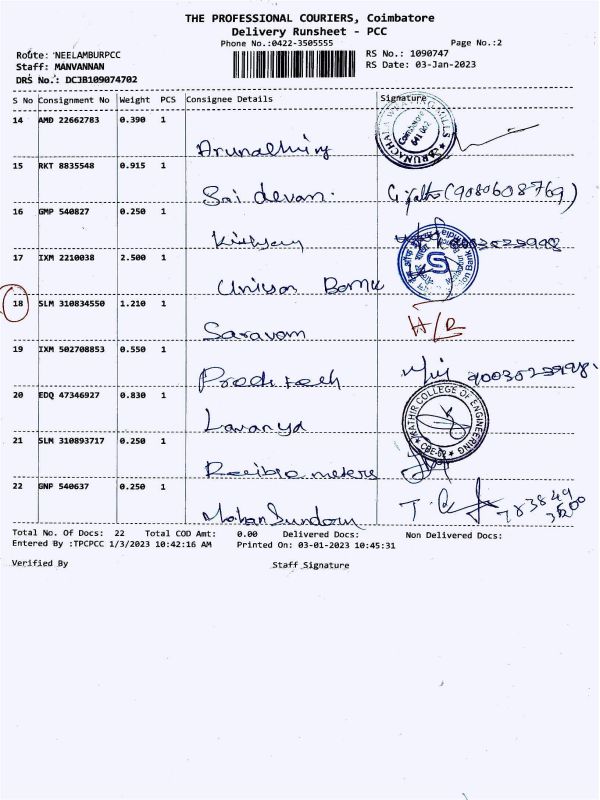 THE PROFESSIONAL COURIERS, Coimbatore
Delivery Runsheet - PCC
Phone No.:0422-3505555 Page No.:2
Route: NEELAMBURPCC RS No.: 1090747
Staff: MANVANNAN RS Date: 03-Jan-2023
DRS No.: DCJB109074702
S No Consignment No Weight PCS Consignee Details Signature
14 AMD 22662783 0.390 1
15 RKT 8835548 0.915 1
Sai devan. (9080608769)
16 GMP 540827 0.250 1
17 IXM 2210038 2.500 1
18 SLM 310834550 1.210 1
Saravam H/R
19 IXM 502708853 0.550 1
9003025998
20 EDQ 47346927 0.830 1
Lavanya KATHIR COLLEGE OF ENGINEERING CBE-62
21 SLM 310893717 0.250 1
22 GNP 540637 0.250 1
Mohan Sundaram
Total No. Of Docs: 22 Total COD Amt: 0.00 Delivered Docs: Non Delivered Docs:
Entered By :TPCPCC 1/3/2023 10:42:16 AM Printed On: 03-01-2023 10:45:31
Verified By Staff Signature